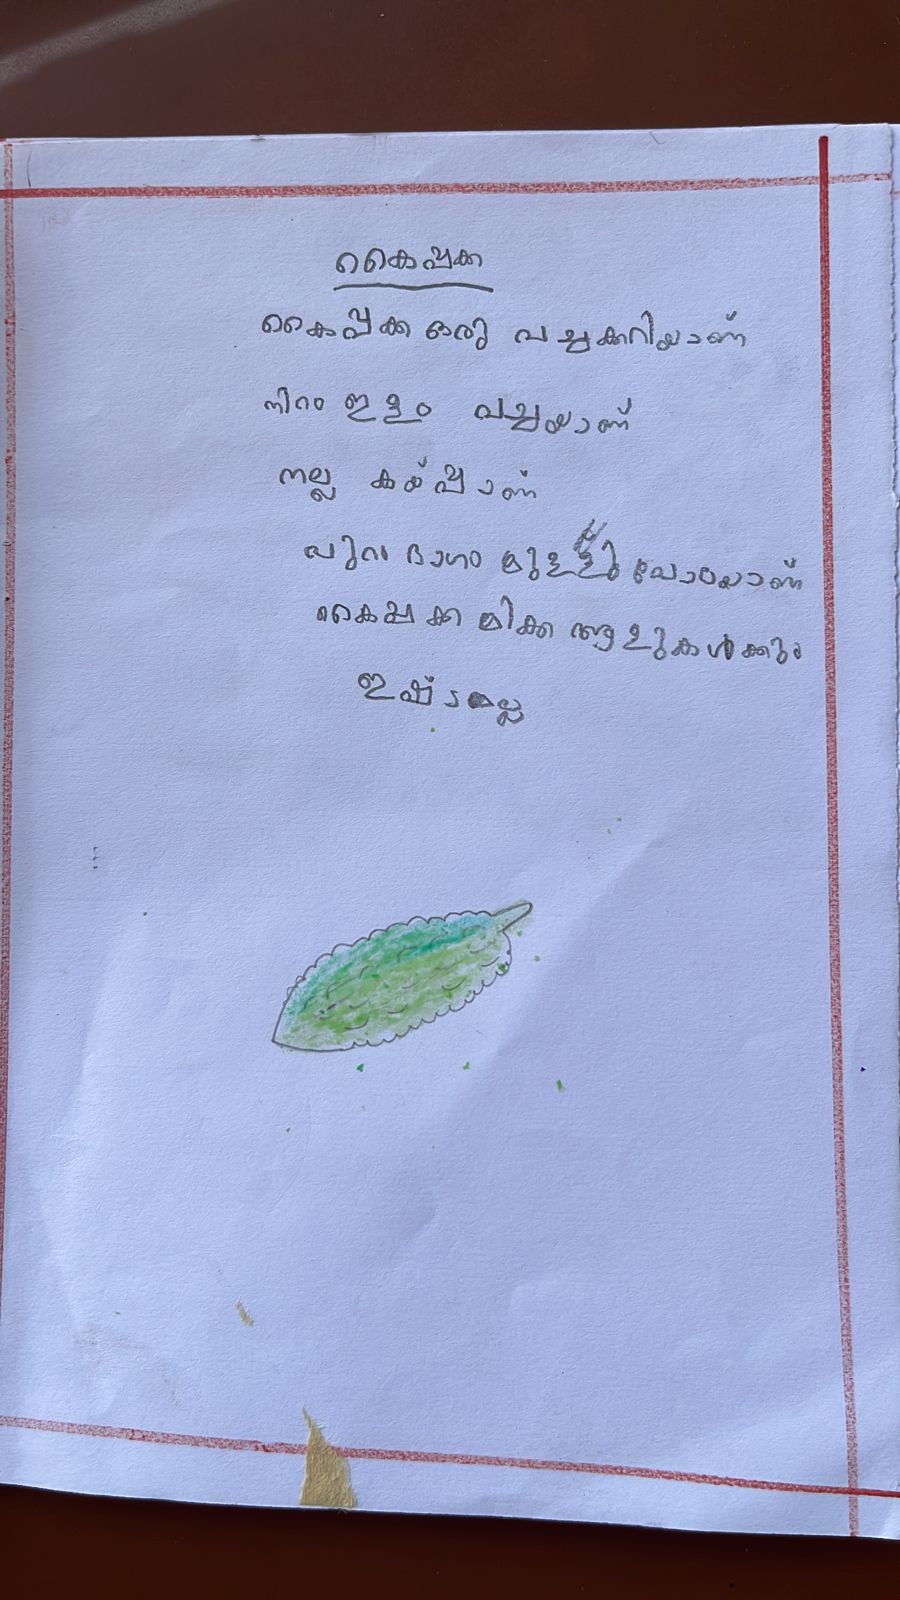 കൈപ്പക്ക
കൈപ്പക്ക ഒരു പച്ചക്കറിയാണ്
നിറം ഇളം പച്ചയാണ്
നല്ല കയ്പ്പാണ്
പുറം ഭാഗം മുള്ളു പോലയാണ്
കൈപ്പക്ക മിക്ക ആളുകൾക്കും
ഇഷ്ടമല്ല